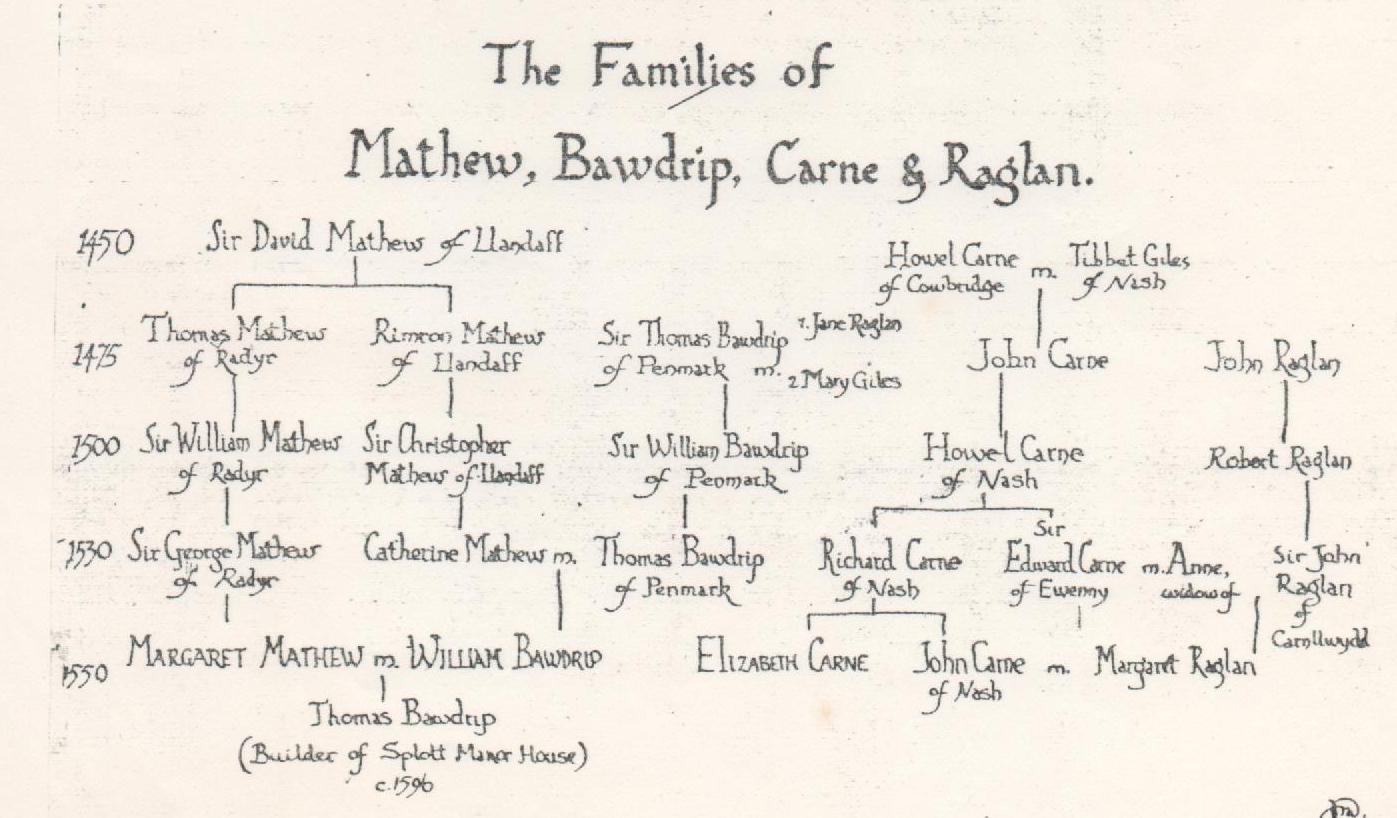 The Families of
Mathew, Bawdrip, Carne & Raglan.
1450 Sir David Mathew of Llandaff
Howel Carne m. Tibbet Giles
of Cowbridge of Nash
1475 Thomas Mathew Rimron Mathew Sir Thomas Bawdrip 1. Jane Raglan John Carne John Raglan
of Radyr of Llandaff of Penmark m. 2 Mary Giles
1500 Sir William Mathew Sir Christopher Sir William Bawdrip Howel Carne Robert Raglan
of Radyr Mathew of Llandaff of Penmark of Nash
1530 Sir George Mathew Catherine Mathew m. Thomas Bawdrip Richard Carne Sir Edward Carne m. Anne, Sir John
of Radyr of Penmark of Nash of Ewenny widow of Raglan
of
Carnllwydd
1550 MARGARET MATHEW m. WILLIAM BAWDRIP ELIZABETH CARNE John Carne m. Margaret Raglan
of Nash
Thomas Bawdrip
(Builder of Splott Manor House)
c.1596